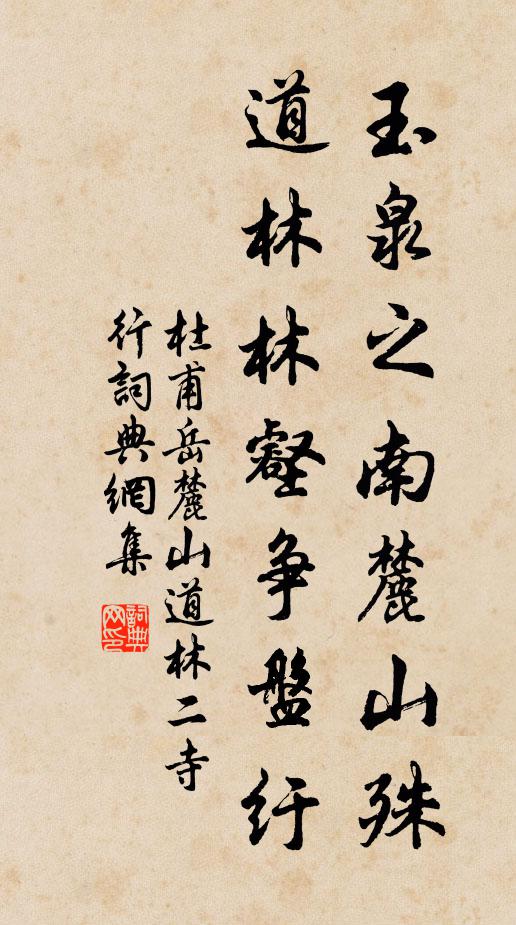 玉泉之南麓山殊
道林林壑争盤紆
杜甫岳麓山道林二寺
行詞典網集
詞典網印